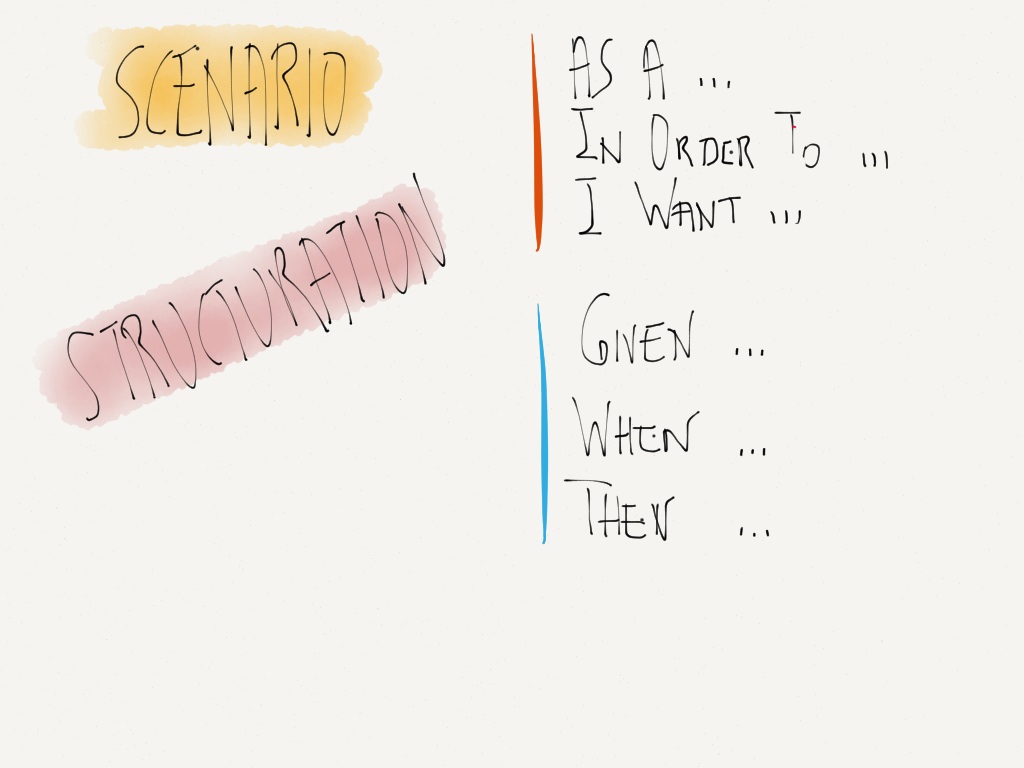 SCENARIO
STRUCTURATION
AS A ...
IN ORDER TO ...
I WANT ...
GIVEN ...
WHEN ...
THEN ...